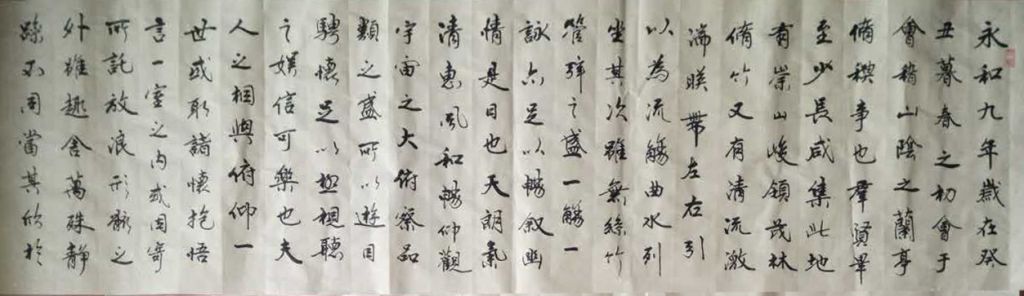 永和九年歲在癸
丑暮春之初會于
會稽山陰之蘭亭
脩稧事也羣賢畢
至少長咸集此地
有崇山峻領茂林
脩竹又有清流激
湍暎帶左右引
以為流觴曲水列
坐其次雖無絲竹
管弦之盛一觴一
詠亦足以暢叙幽
情是日也天朗氣
清惠風和暢仰觀
宇宙之大俯察品
類之盛所以遊目
騁懷足以極視聽
之娛信可樂也夫
人之相與俯仰一
世或取諸懷抱悟
言一室之內或因寄
所託放浪形骸之
外雖趣舍萬殊靜
躁不同當其欣於